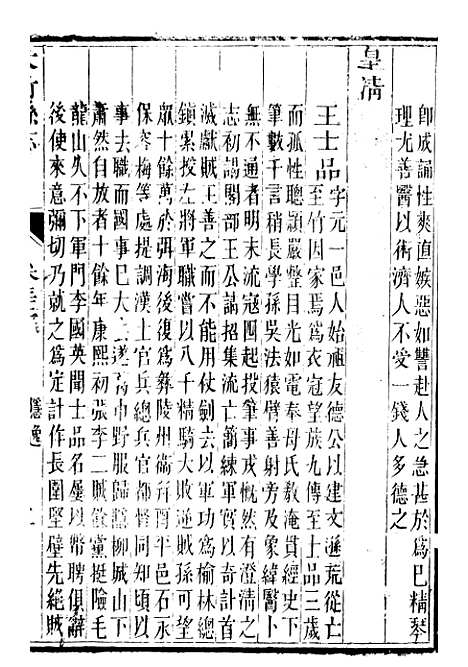 即成誦性爽直嫉惡如讐赴人之急甚於爲巳精琴
理尤善醫以術濟人不愛一錢人多德之
皇凊
王士品字元一邑人始祖友德公以建文遜荒從亡
至竹因家焉爲衣冠望族九傳至士品三歲
而孤性聰頴嚴整目光如電奉母氏教淹貫經史下
筆數千言稍長學孫吳法猿臂善射旁及象緯醫卜
無不通者明末流冦囬起投筆事戎慨然有澄清之
志初謁閣部王公謀招集流亡簡練軍實以奇計首
滅獻賊王善之乃能用仗劍去以軍功爲榆林總
鎮紮投左將軍職嘗以八千精騎大破賊孫可望
衆十餘萬於弭海後復爲彝陵州衞
平邑石永
保容梅等處提調漢土官兵總兵官都督同知頃以
事去職而國事巳大
遂
野服歸隱柳城山下
蕭然自放者十餘年康熙初張李二賊餘黨挺險毛
龍山久不下軍門李國英聞士品名屢以幣聘俱辭
後使來意彌切乃就之爲定計作長圍堅壁先絕
隱逸